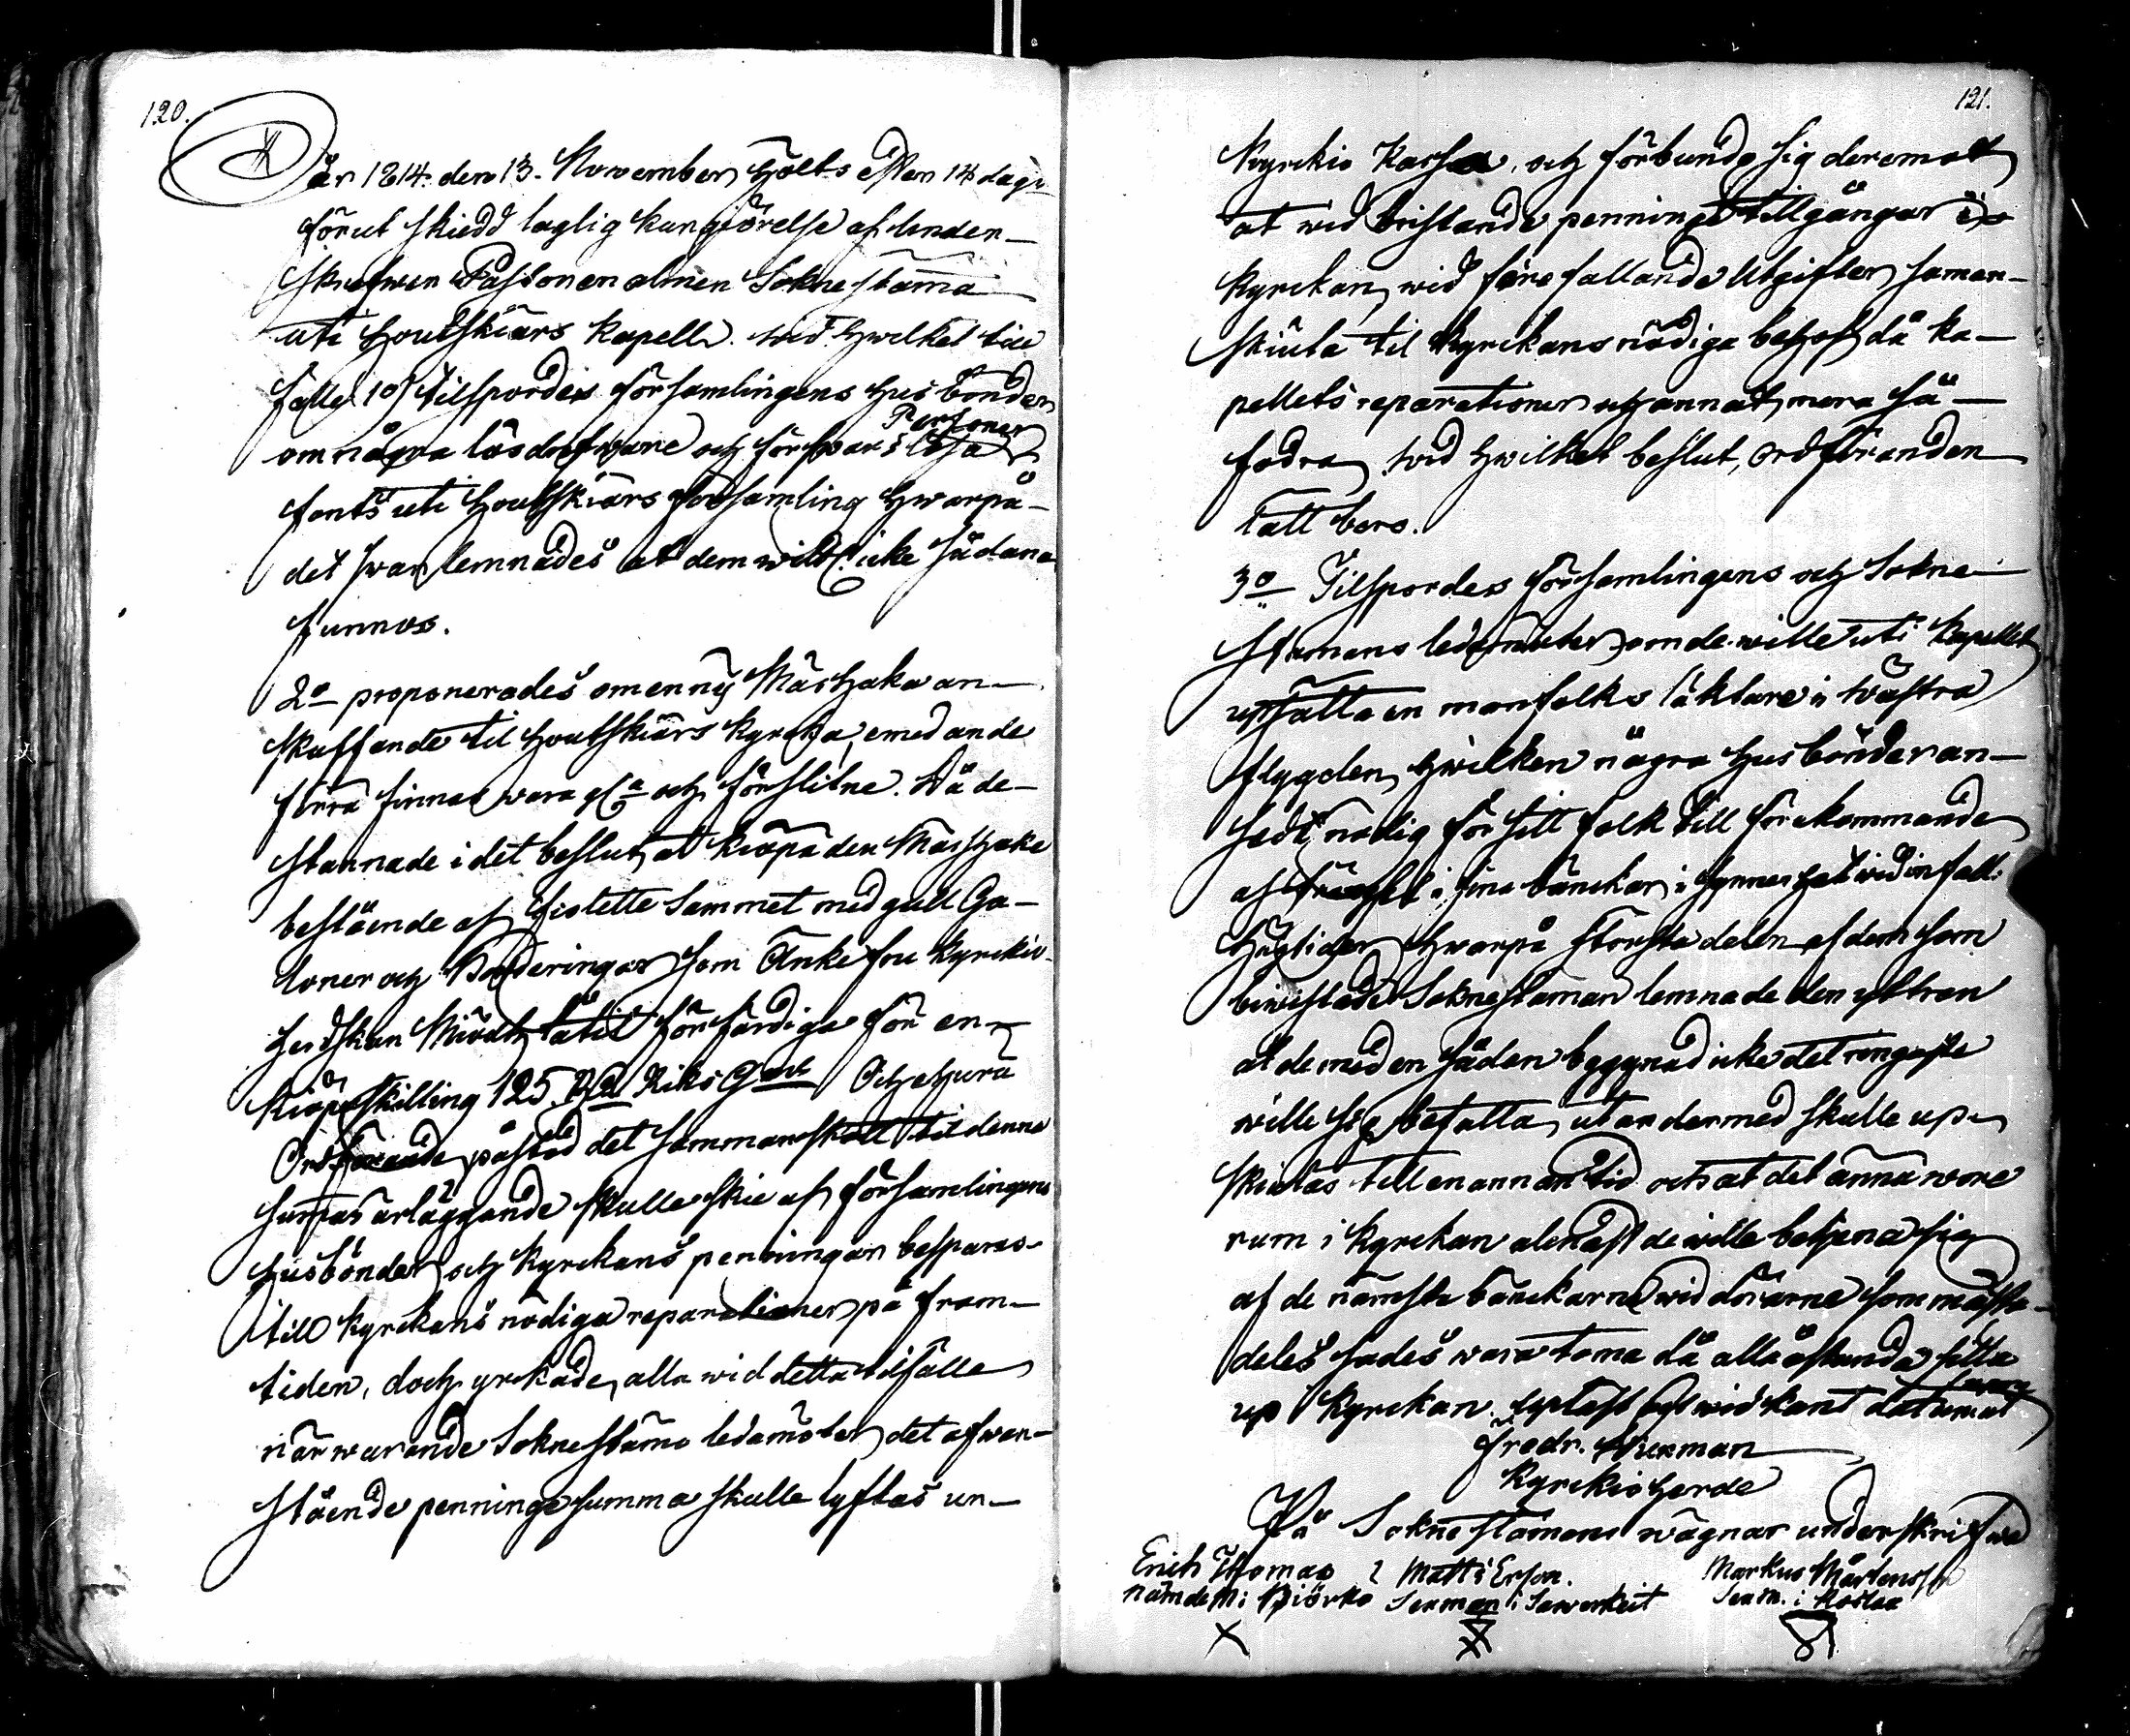 120.
År 1814. den 13. November hölts efter 14 dagr
förut skiedd laglig kungiörelse af under-
skrefwen Pastor en almen Sokne stäma
uti Houtskiärs Kapell. wid hwilket till
fälle 1o/ tilspordes församlingens husbönder
om några lösdrifware och förswarslösa Personer
fants uti Houtskiärs församling hwarpå
det swar lemnades at dem wetl. icke sådana
funnos.
2o proponerades om en ny Mäshaka an-
skaffande til Houtskiärs kyrcka, emedan de
förra finnas wara gla och förslitne. Då de
stannade i det beslut at kiöpa den Mäshake
bestående af fiolette Sammet med guld Ga-
loner och Borderingar som Änke fru kyrckio-
herdskan Miödh låtit förfärdiga för en
kiöpeskilling 125. Rd Riks Gäld Och ehuru
Ordförande påstod det sammanskott til denna
summas erläggande skulle skie af församlingens
husbönder och kyrckans penningar besparas
till kyrckans nödiga reparationer på fram-
tiden, doch yrckade alla wid detta tilfälle
närwarande Soknestäms ledamöter det afwan-
stående penninge summa skulle lyftas ur
121.
Kyrckio Kassa, och förbundo sig deremot
at wid bristande penninge tillgångar i
kyrckan, wid före fallande Utgifter saman-
skiuta til kyrckans nödiga behof då ka-
pellets reparationer och annat mera så
fodra, wid hwilket beslut, ordföranden
lätt bero.
3o Tilspordes församlingens och Sokne
stämans ledamöter om de wille uti Kapellet
upsätta en manfolks läktare i wästra
flygelen, hwilken några husbönder an-
sedt nödig för sitt folk till förekommande
af trängsel i sina bänckar i synnerhet wid infall.
högtider hwarpå största delen af dem som
bewistade Soknestäman lemnade den yttran
at de med en sådan byggnad icke det ringaste
wille sig befatta, utan dermed skulle up-
skiutas till en annan tid och at det ännu wore
rum i kyrckan allenast de wille betjena sig
af de nämsta bänckarne wid dörarne som måste
deles sades wara toma då alla åstunda sitta
up i kyrckan
Fredr. Åkerman
Kyrckioherde
På Sokne stämans wägnar underskrifwa
Erich Thomas
nämdem: i Biörkö
X
Matts Erson.
Sexman i Sawerkeit
Markus Mårtensson
Sexm. i